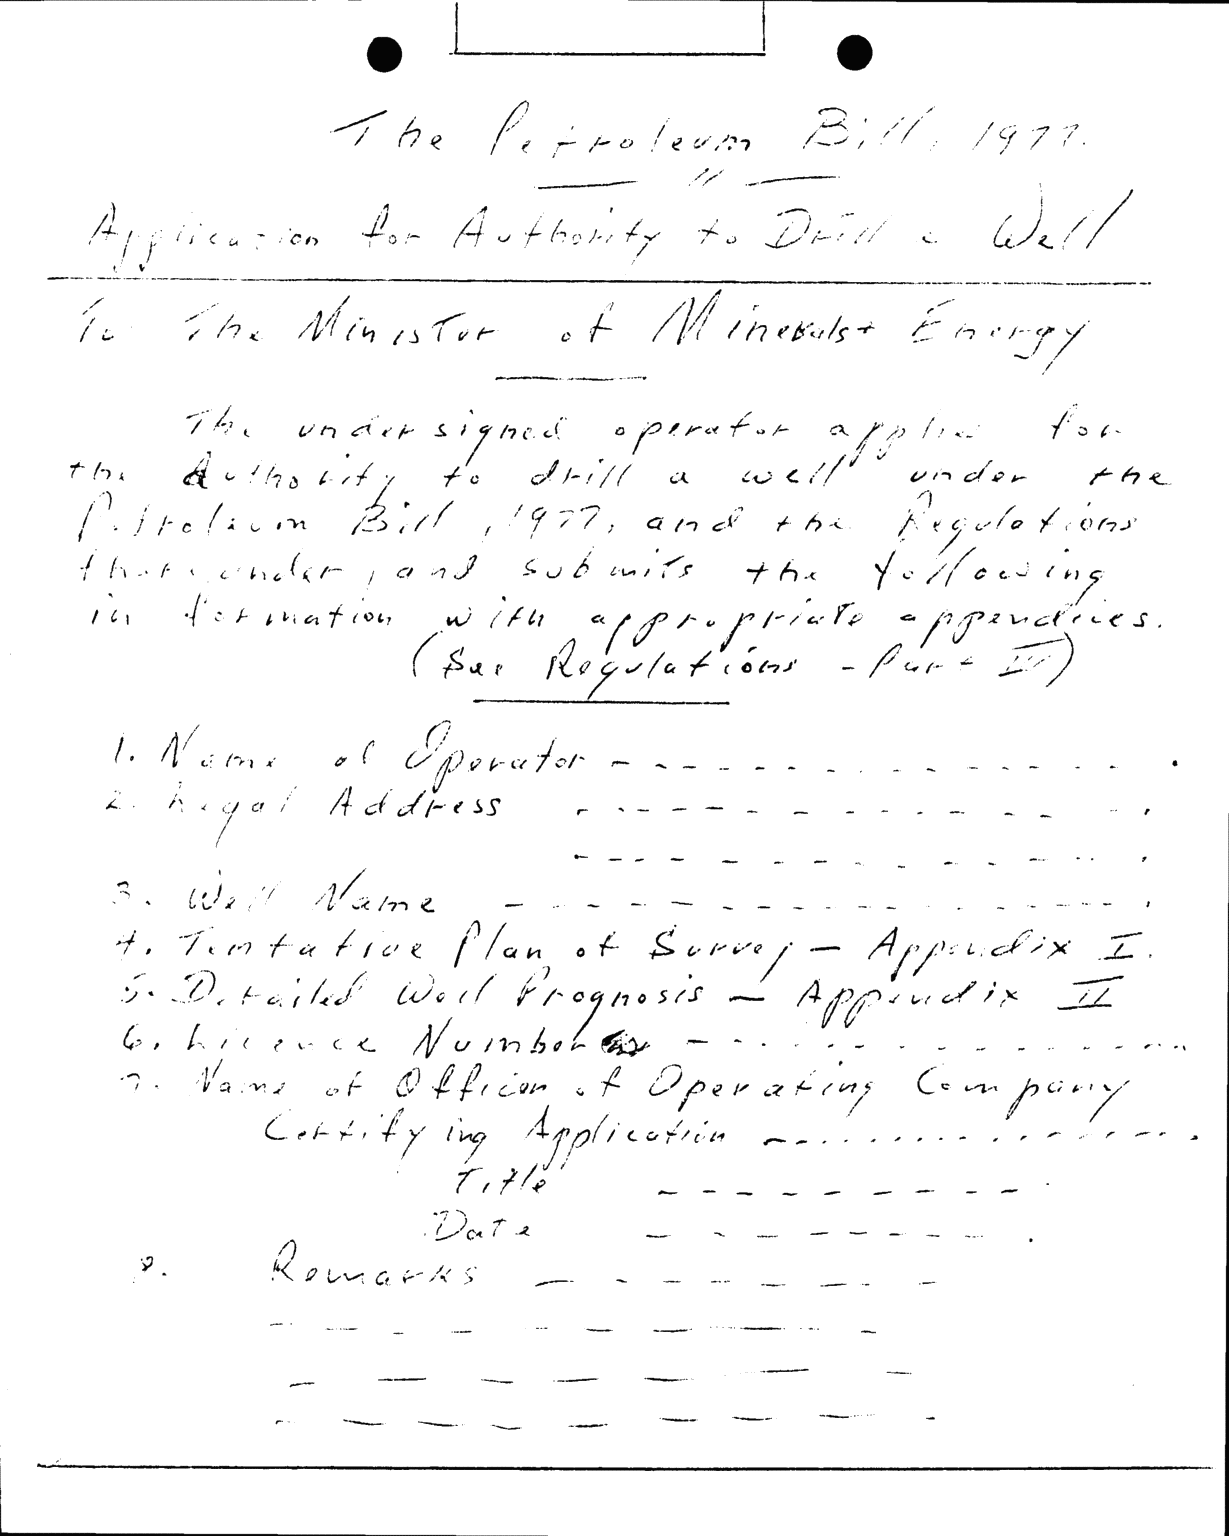 The Petroleum Bill, 1977.
"
Application for Authority to Drill a Well
To The Minister of Minerals + Energy
The undersigned operator applies for
the Authority to drill a well under the
Petroleum Bill, 1977, and the Regulations
thereunder, and submits the following
information with appropriate appendices.
(See Regulations - Part IV)
1. Name of Operator - - - - - - - - - - - - - .
2. Legal Address - - - - - - - - - - - - .
- - - - - - - - - - - - .
3. Well Name - - - - - - - - - - - - - - - .
4. Tentative Plan of Survey - Appendix I.
5. Detailed Well Prognosis - Appendix II
6. Licence Number - - - - - - - - - - - - - -
7. Name of Officer of Operating Company
Certifying Application - - - - - - - - - - - - .
Title - - - - - - - - - .
Date - - - - - - - - - .
8. Remarks - - - - - - - -
- - - - - - - - -
- - - - - - - -
- - - - - - - - -